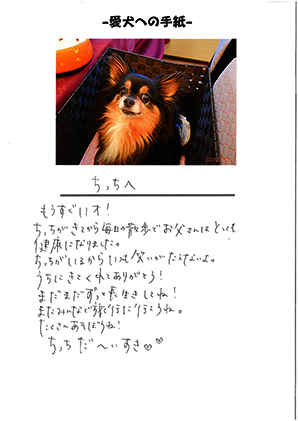 -愛犬への手紙-
ちっちへ
もうすぐ11才!
ちっちがきてから毎日の散歩でお父さんはとても
健康になりました。
ちっちがいるからいつも笑いがたえないよ。
うちにきてくれてありがとう!
まだまだずっと長生きしてね!
またみんなで旅行に行こうね。
たくさんあそぼうね!
ちっちだ〜いすき♡♡